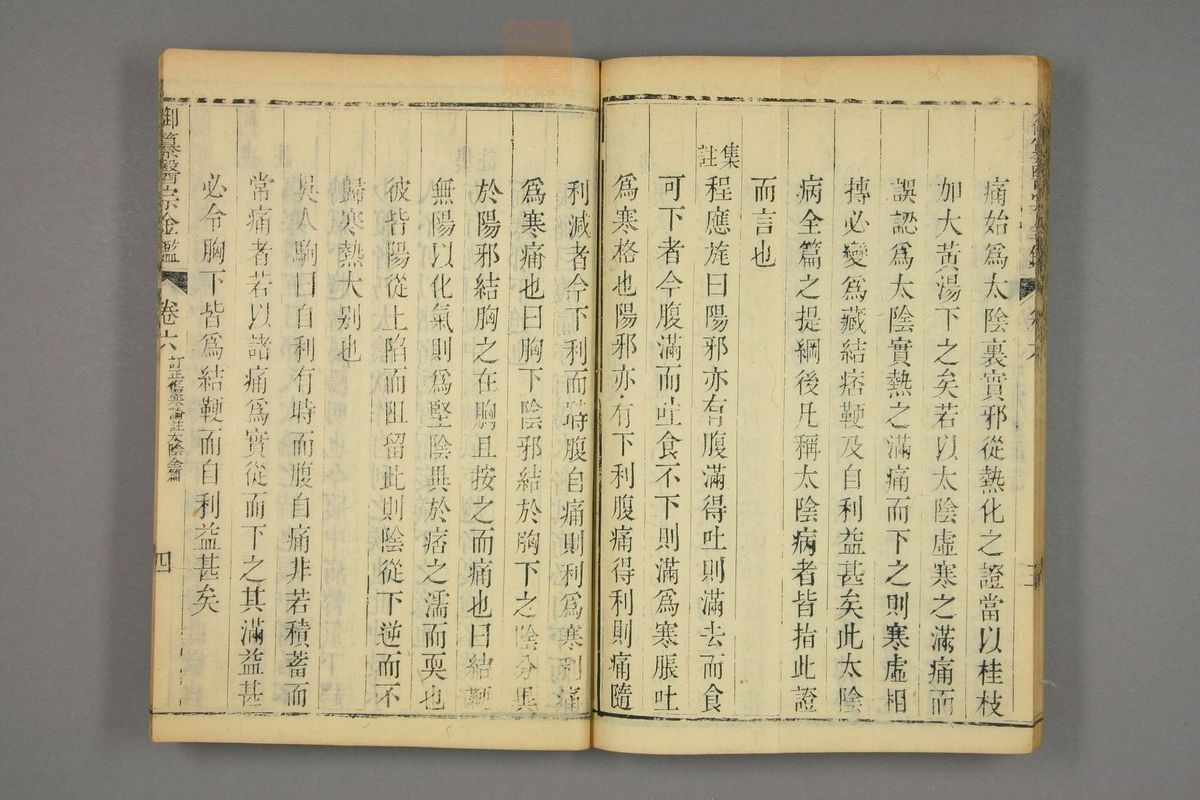 痛始爲太陰裏實邪從熱化之證當以桂枝
加大黃湯下之矣若以太陰虛寒之滿痛而
誤認爲太陰實熱之滿痛而下之則寒虛相
摶必變爲藏結痞鞕及自利益甚矣此太陰
病全篇之提綱後凡稱太陰病者皆指此證
而言也
集註
程應旄曰陽邪亦有腹滿得吐則滿去而食
可下者今腹滿而吐食不下則滿爲寒脹吐
爲寒格也陽邪亦有下利腹痛得利則痛隨
利減者今下利而時腹自痛則利爲寒利痛
爲寒痛也曰胸下陰邪結於胸下之陰分異
於陽邪結胸之在胸且按之而痛也曰結鞕
無陽以化氣則爲堅陰異於痞之濡而耎也
彼皆陽從上陷而阻留此則陰從下逆而不
歸寒熱大别也
吳人駒曰自利有時而腹自痛非若積蓄而
常痛者若以諸痛爲實從而下之其滿益甚
必令胸下皆爲結鞕而自利益甚矣
御纂醫宗金鑑 卷六 訂正傷寒論註太陰全篇 四